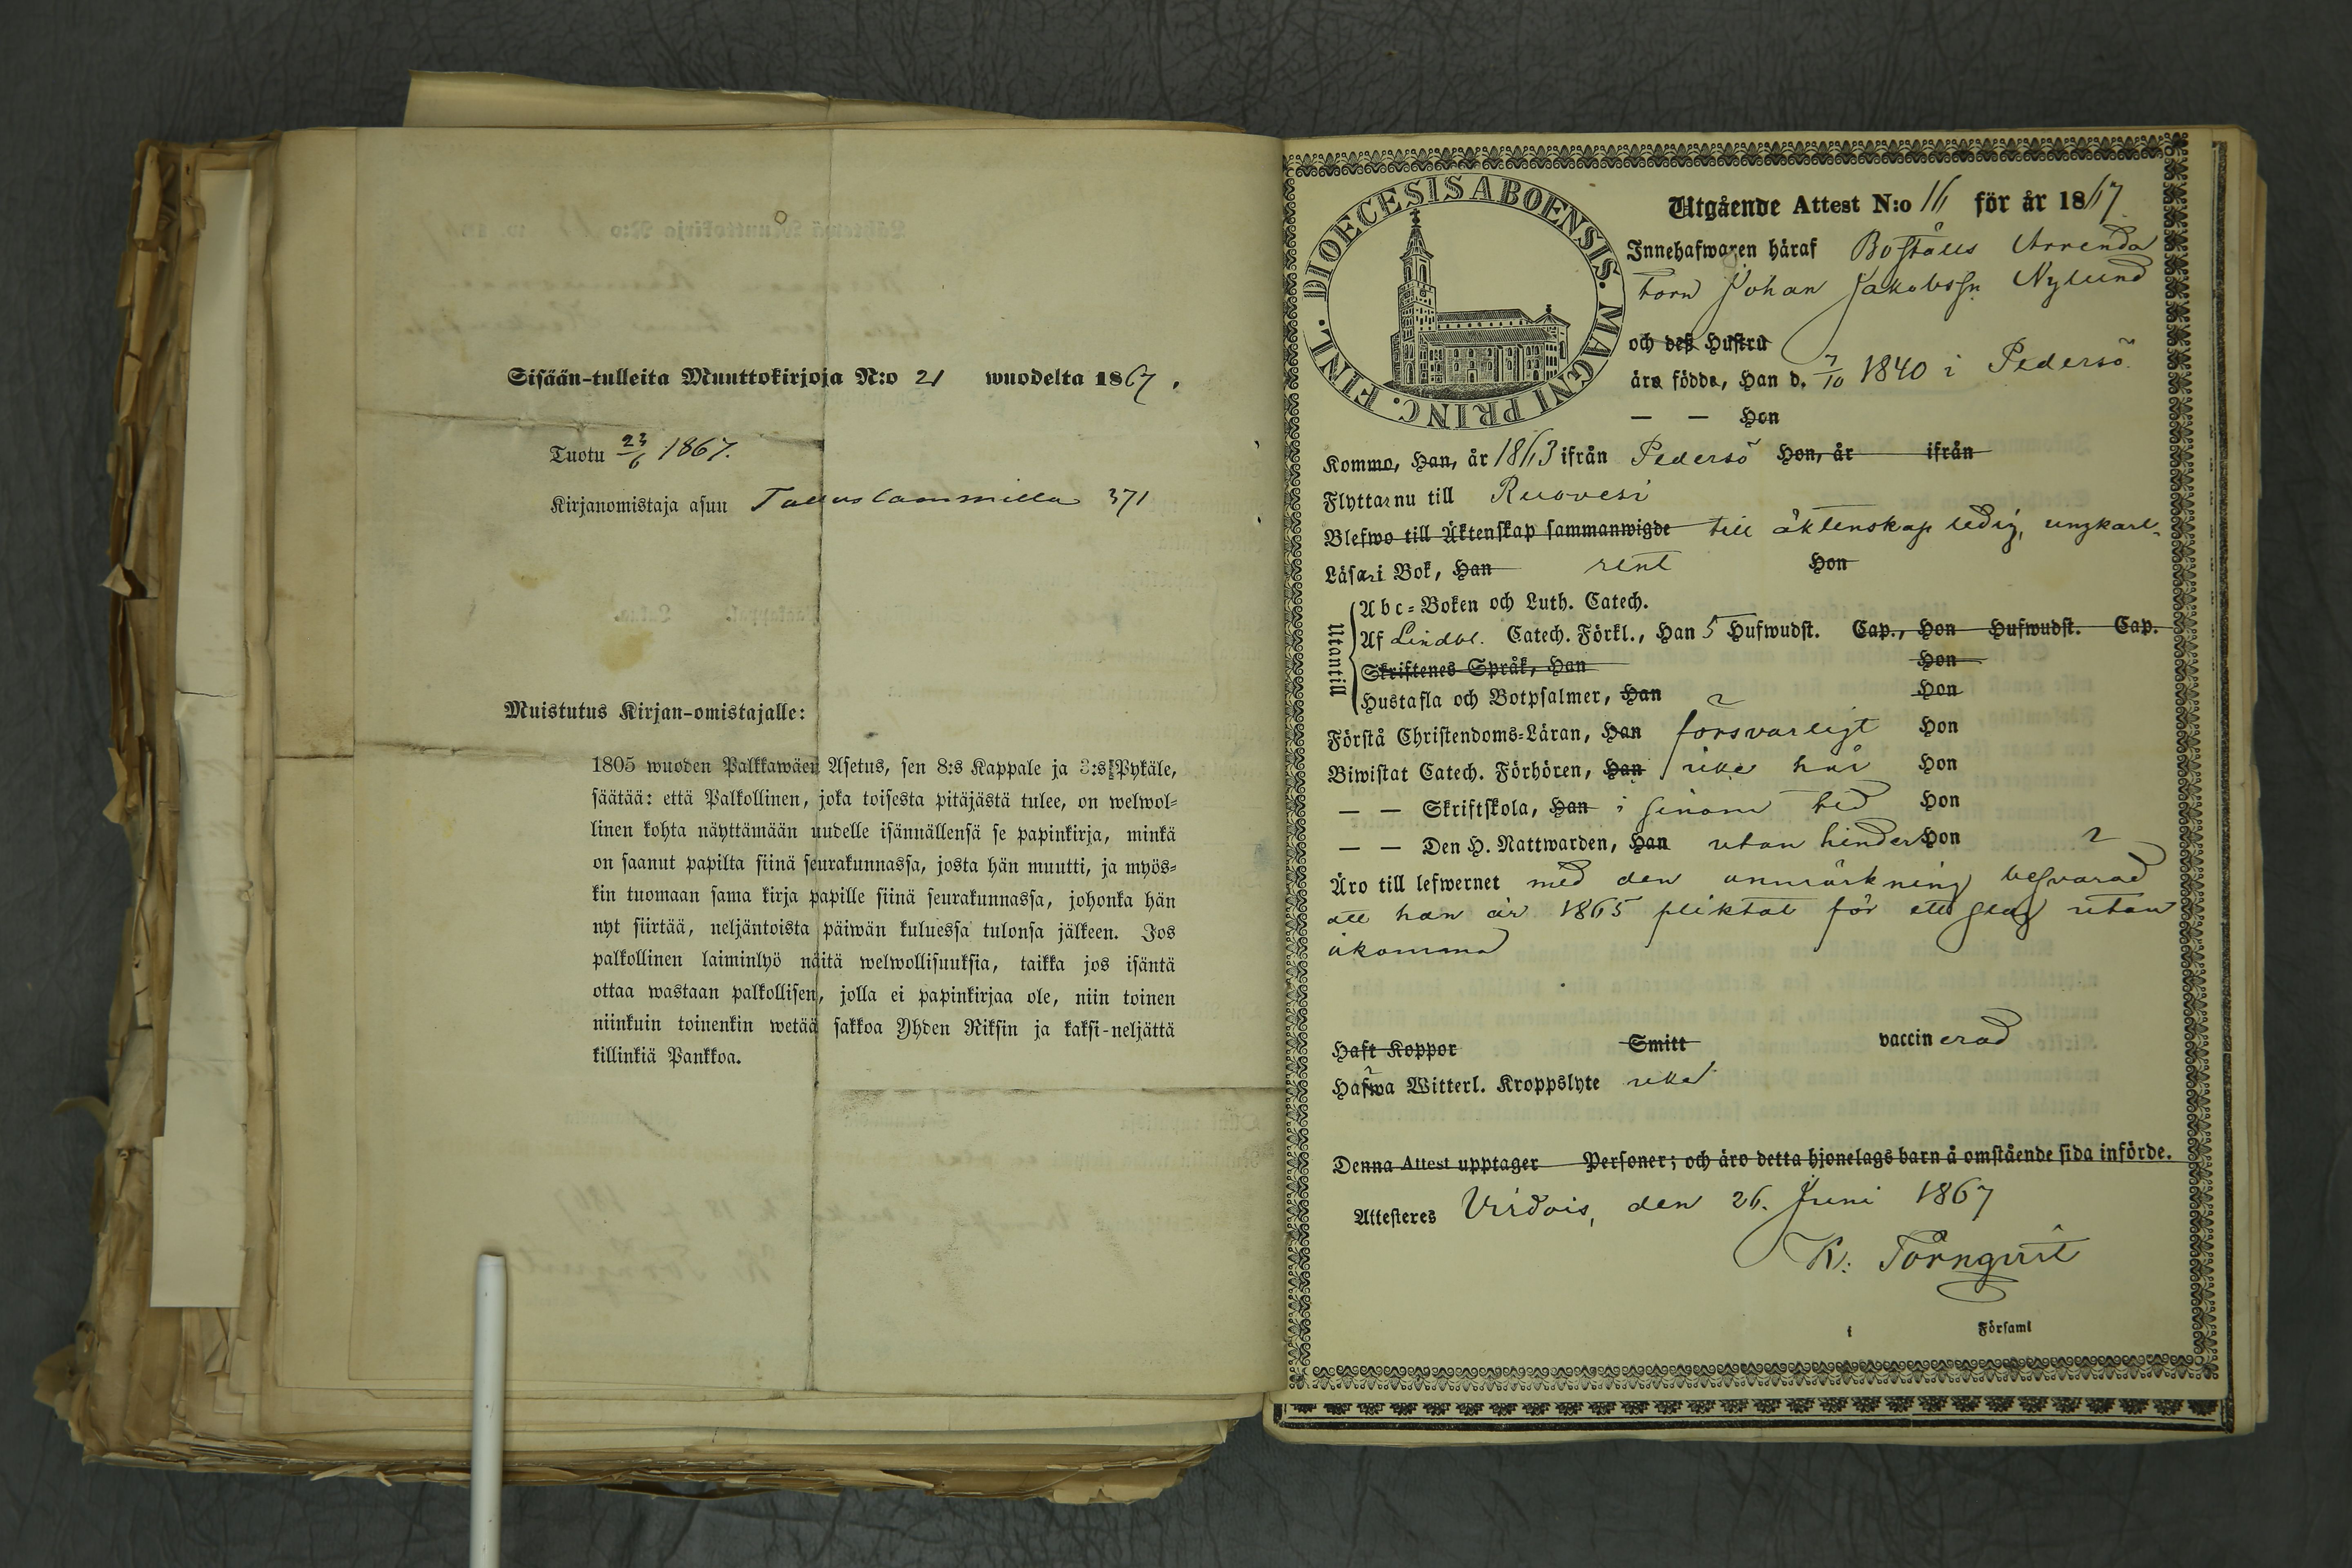 Sisään-tulleita Muuttokirjoja N:o 21 wuodelta 1867.
Tuotu 23/6 1867.
Kirjanomistaja asuu 371
Muistutus Kirjan-omistajalle:
1805 wuoden Palkkawäen Asetus, sen 8:s Kappale ja 3:s Pykäle,
säätää: että Palkollinen, joka toisesta pitäjästä tulee, on welwol-
linen kohta näyttämään uudelle isännällensä se papinkirja, minkä
on saanut papilta siinä seurakunnassa, josta hän muutti, ja myös-
kin tuomaan sama kirja papille siinä seurakunnassa, johonka hän
nyt siirtää, neljäntoista päiwän kuluessa tulonsa jälkeen. Jos
palkollinen laiminlyö näitä welwollisuuksia, taikka jos isäntä
ottaa wastaan palkollisen, jolla ei papinkirjaa ole, niin toinen
niinkuin toinenkin wetää sakkoa Yhden Riksin ja kaksi-neljättä
killinkiä Pankkoa.
DIOECESIS ABOENSIS. MAGNI PRINC. FINL.
Utgående Attest N:o 16 för år 1867.
Innehafwaren häraf Boställs Arrenda
torn Johan Jakobssn Nylund
och deß Hustru
äro födde, Han d. 7/10 1840 i Pedersö
— — Hon
Kommo, Han, år 1863 ifrån Pedersö Hon, år ifrån
Flyttar nu till Ruovesi
Blefwo till Äktenskap sammanwigde till äktenskap ledig, ungkarl.
Läsa i Bok, Han rent Hon
Utantill
Abc-Boken och Luth. Catech.
Af Lindbl. Catech. Förkl., Han 5 Hufwudst. Cap., Hon Hufwudst. Cap.
Skriftenes Språk, Han Hon
Hustafla och Botpsalmer, Han Hon
Förstå Christendoms-Läran, Han försvarligt Hon
Biwistat Catech. Förhören, Han icke här Hon
— — Skriftskola, Han i sinom tid Hon
— — Den H. Nattwarden, Han utan hinder Hon
Äro till lefwernet med den anmärkning besvarad
att han år 1865 pliktat för ett slag utan
åkomma
Haft Koppor Smitt vaccinerad
Hafwa Witterl. Kroppslyte icke
Denna Attest upptager Personer; och äro detta hjonelags barn å omstående sida införde.
Attesteres Virdois, den 26. Juni 1867
K: Törnqvist
i Församl